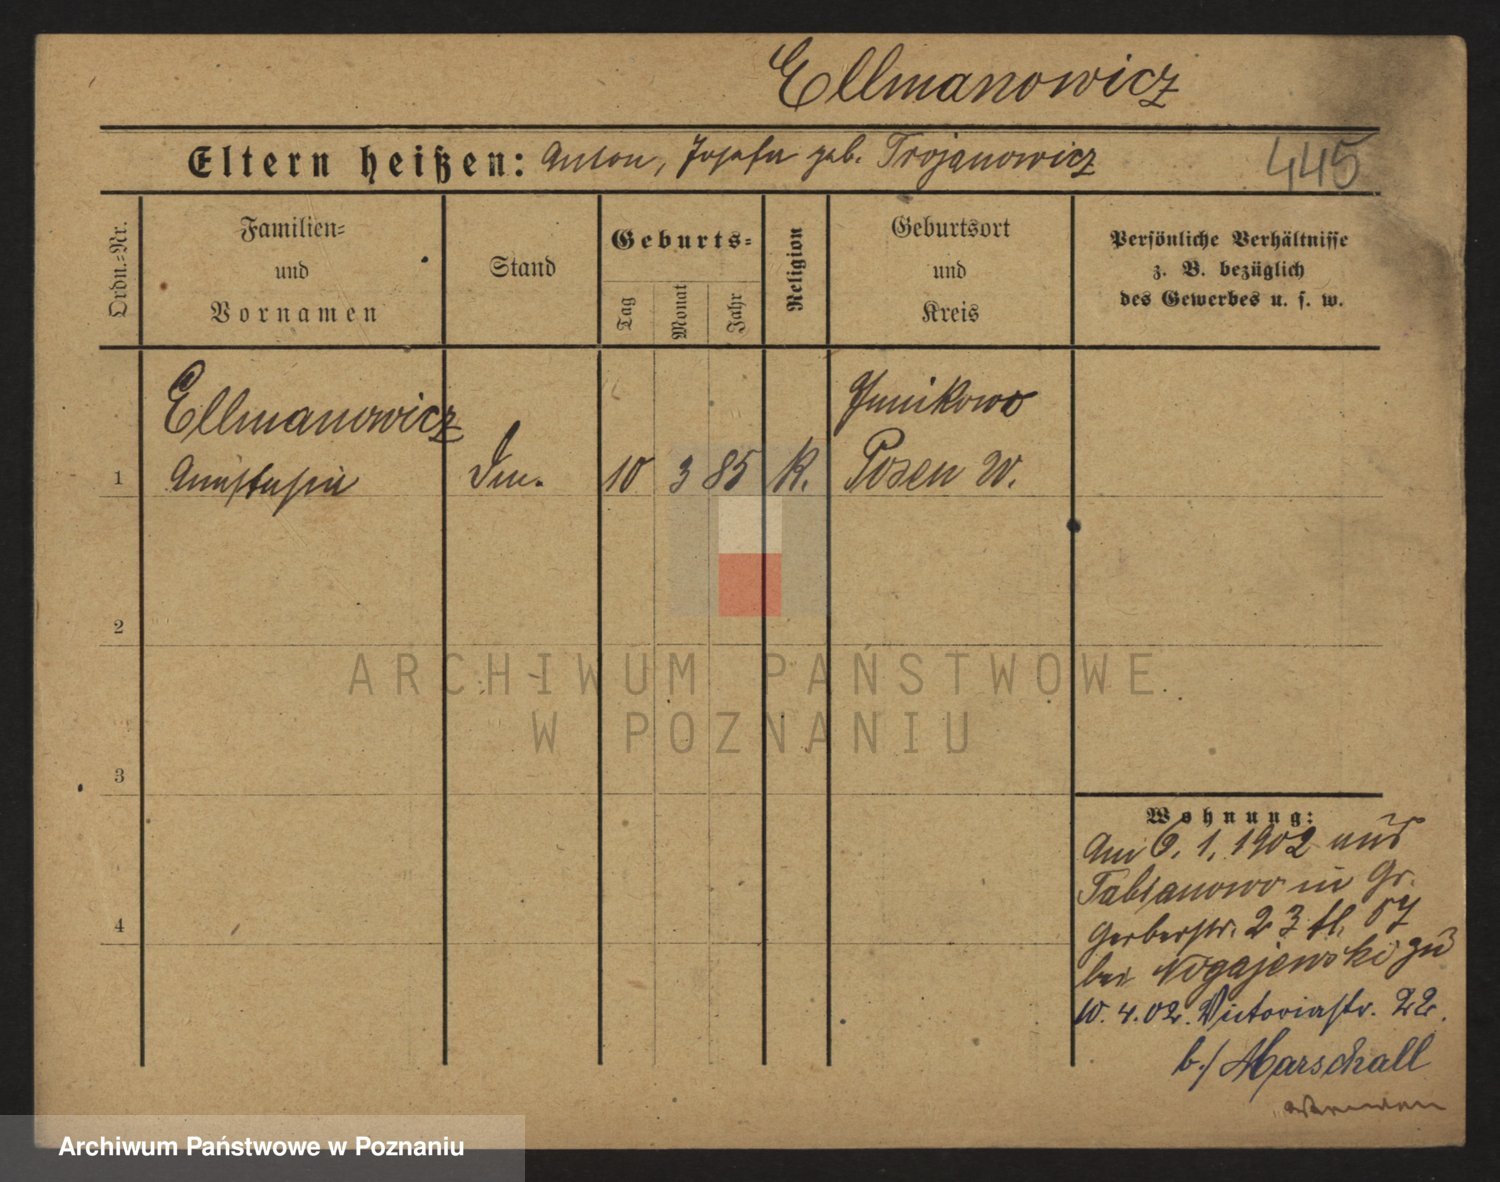 Ellmanowicz
Eltern heißen: Anton, Josefa geb. Trojanowicz
445
Ordn.-Nr.
Familien-
und
Vornamen
Stand
Geburts-
Tag
Monat
Jahr
Religion
Geburtsort
und
Kreis
Persönliche Verhältnisse
z. B. bezüglich
des Gewerbes u. s. w.
Ellmanowicz
Junikowo
1 Anastasia 10 3 85 K. Posen W.
2
ARCHIWUM PAŃSTWOWE
W POZNANIU
3
Wohnung:
Am 6. 1. 1902 aus
Fabianowo in Gr.
4
Gerberstr. 23
bei Nogajewski zu
10. 4. 02. Victoriastr. 22.
b./ Marschall
Archiwum Państwowe w Poznaniu